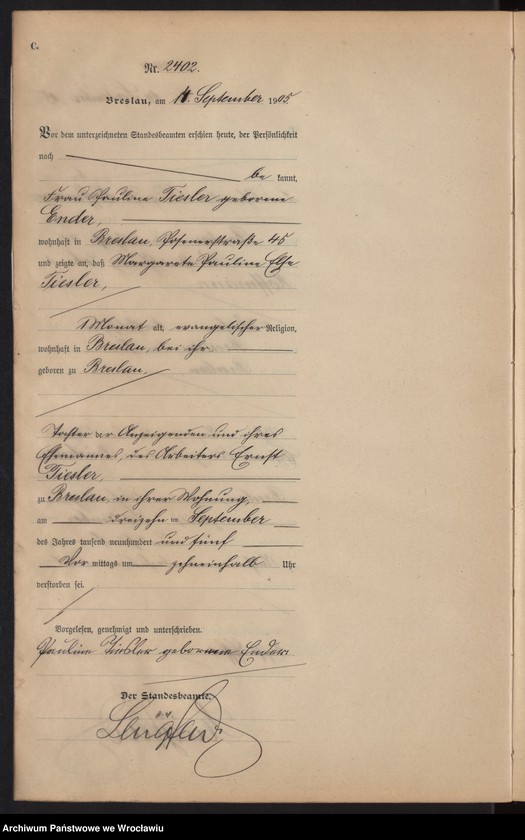 C.
Nr. 2402.
Breslau, am 14. September 1905
Vor dem unterzeichneten Standesbeamten erschien heute, der Persönlichkeit
nach
be kannt,
Frau Pauline Tiesler geborene
Ender,
wohnhaft in Breslau, Posenerstraße 45
und zeigte an, daß Margarete Pauline Else
Tiesler,
1 Monat alt, evangelischer Religion,
wohnhaft in Breslau, bei ihr
geboren zu Breslau,
Tochter der Anzeigenden und ihres
Ehemannes, des Arbeiters Ernst
Tiesler,
zu Breslau, in ihrer Wohnung,
am dreizehn ten September
des Jahres tausend neunhundert und fünf
Vor mittags um zehneinhalb Uhr
verstorben sei.
Vorgelesen, genehmigt und unterschrieben.
Pauline Tiesler geborene Ender
Der Standesbeamte.
Archiwum Państwowe we Wrocławiu